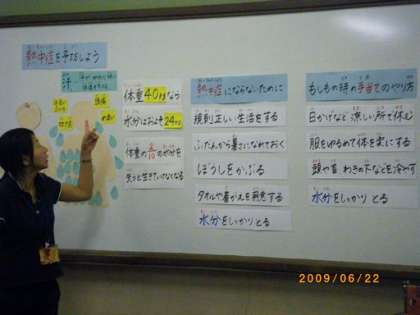 熱中症を予防しよう
汗
体重40kgなら
水分はおよそ24kg
体重の
の水分を
失うと生きていけなくなる
熱中症にならないために
規則正しい生活をする
ふだんから暑さになれておく
ぼうしをかぶる
タオルや着がえを用意する
水分をしっかりとる
もしもの時の手当てのやり方
日かげなど涼しい所で休む
服をゆるめて体を楽にする
頭や首わきの下などを冷やす
水分をしっかりとる
2009/06/22